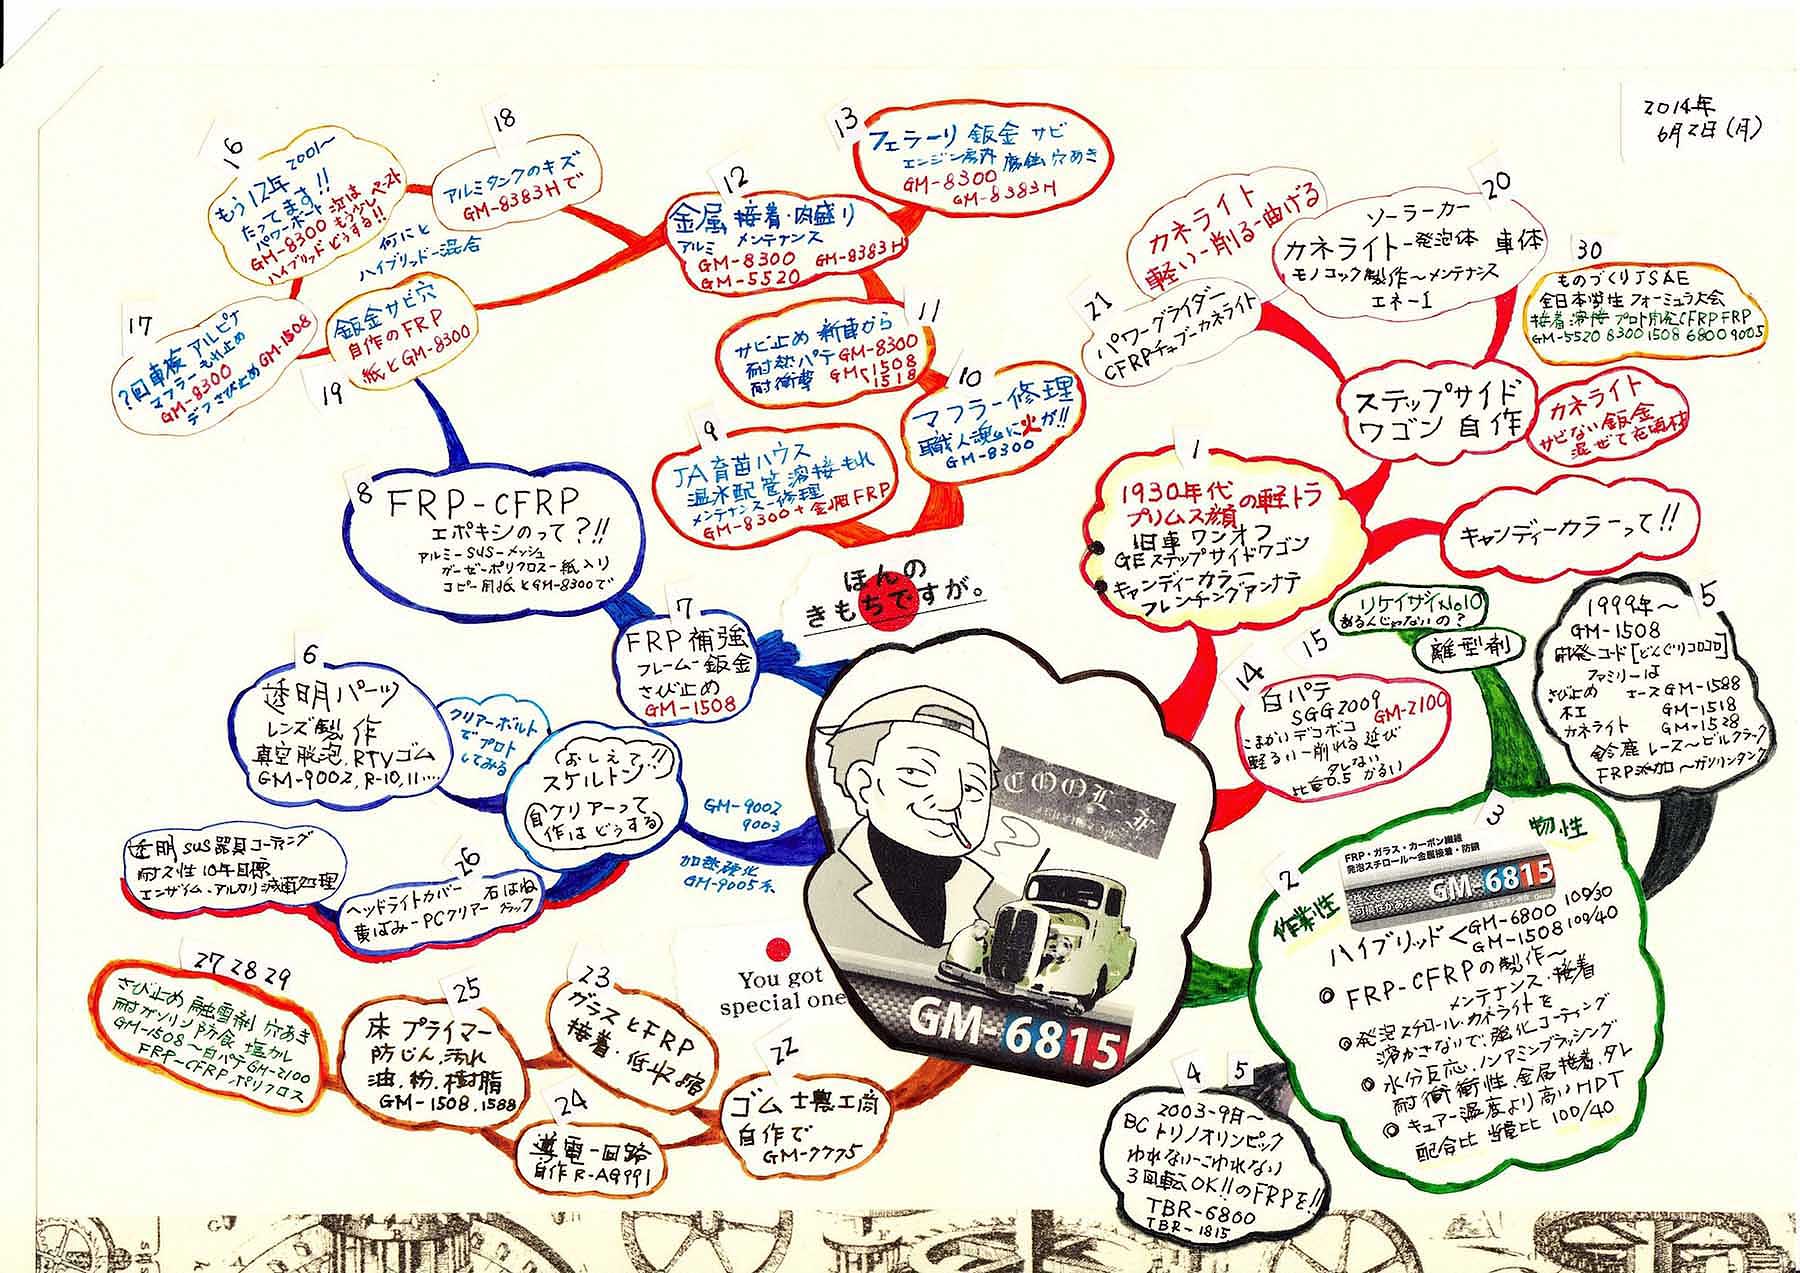 2014年
6月2日(月)
16
もう12年 2001〜
たってます!!
パワーボート 次は
GM-8300 もう少しペースト
ハイブリッド どうする!!
18
アルミタンクのキズ
GM-8383Hで
何にと
ハイブリッドー混合
17
?回車検 アルピナ
マフラーもれ止め
GM-8300
デフさび止め GM-1508
19
鈑金サビ穴
自作のFRP
紙とGM-8300
12
金属 接着・肉盛り
アルミ メンテナンス
GM-8300 GM-8383H
GM-5520
13
フェラーリ 鈑金 サビ
エンジン房内 腐蝕 穴あき
GM-8300
GM-8383H
11
サビ止め 新車から
耐熱パテ GM-8300
耐衝撃 GM-1508
1518
10
マフラー修理
職人魂に火が!!
GM-8300
9
JA育苗ハウス
温水配管溶接もれ
メンテナンスー修理
GM-8300+金網FRP
8
FRP-CFRP
エポキシのって?!!
アルミーSUSーメッシュ
ガーゼーポリクロスー紙入り
コピー用紙とGM-8300で
7
FRP補強
フレームー鈑金
さび止め
GM-1508
ほんの
きもちですが。
6
透明パーツ
レンズ製作
真空脱泡、RTVゴム
GM-9002、R-10,11....
クリアーボルト
でプロト
してみる
(おしえて!!)
スケルトン
自 クリアーって
作は どうする
GM-9002
9003
加熱硬化
GM-9005系
透明 SUS器具コーティング
耐久性10年目標
エンザイム・アルカリ滅菌処理
26
ヘッドライトカバー 石はね
黄ばみーPCクリアー ブラック
27 28 29
さび止め 融雪剤 穴あき
耐ガソリン 防食 塩カル
GM-1508〜白パテGM-2100
FRP-CFRP.ポリクロス
25
床 プライマー
防じん、汚れ
油、粉、樹脂
GM-1508.1588
23
ガラスとFRP
接着・低収縮
24
導電ー回路
自作R-AG991
22
ゴム 士農工商
自作で
GM-7775
You got
special one
GM-6815
カネライト
軽いー削るー曲げる
20
ソーラーカー
カネライトー発泡体 車体
モノコック製作〜メンテナンス
エネー1
21
パワーグライダー
CFRPチューブーカネライト
30
ものづくりJSAE
全日本学生 フォーミュラ大会
接着 溶接 プロト開発CFRP FRP
GM-5520 8300 1508 6800 9005
ステップサイド
ワゴン 自作
カネライト
サビない鈑金
混ぜて
1
1930年代の軽トラ
プリムス顔
旧車 ワンオフ
GEステップサイドワゴン
キャンディーカラー
フレンチングアンテナ
キャンディーカラーって!!
リケイザイNo10
あるんじゃないの?
離型剤
5
1999年〜
GM-1508
開発コード[どんぐりコロコロ]
ファミリーは
さび止め エースGM-1588
木工 GM-1518
カネライト GM-1528
鈴鹿 レース〜ビルクラック
FRP添加〜ガソリンタンク
14 15
白パテ
SGG2009 GM-2100
こまかいデコボコ
軽るいー削れる 延び
タレない
比重0.5 かるい
2
作業性
3
物性
FRP・ガラス・カーボン繊維
発泡スチロール〜金属接着・防錆
GM-6815
ハイブリッド<GM-6800 100/30
GM-1508 100/40
◎ FRP-CFRPの製作〜
メンテナンス・接着
◎発泡スチロール・カネライトを
溶かさないで、強化コーティング
◎水分反応、ノンアミンブラッシング
耐衝撃性、金属接着、タレ
◎キュアー温度より高いHDT
配合比 当量比 100/40
4 5
2003-9月〜
BCトリノオリンピック
われないーこわれない
3回転OK!!のFRPを!!
TBR-6800
TBR-1815